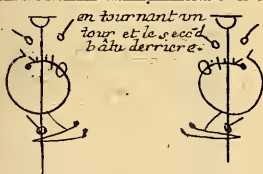 en tournant un
tour et le sec.d
bâtu derriere.